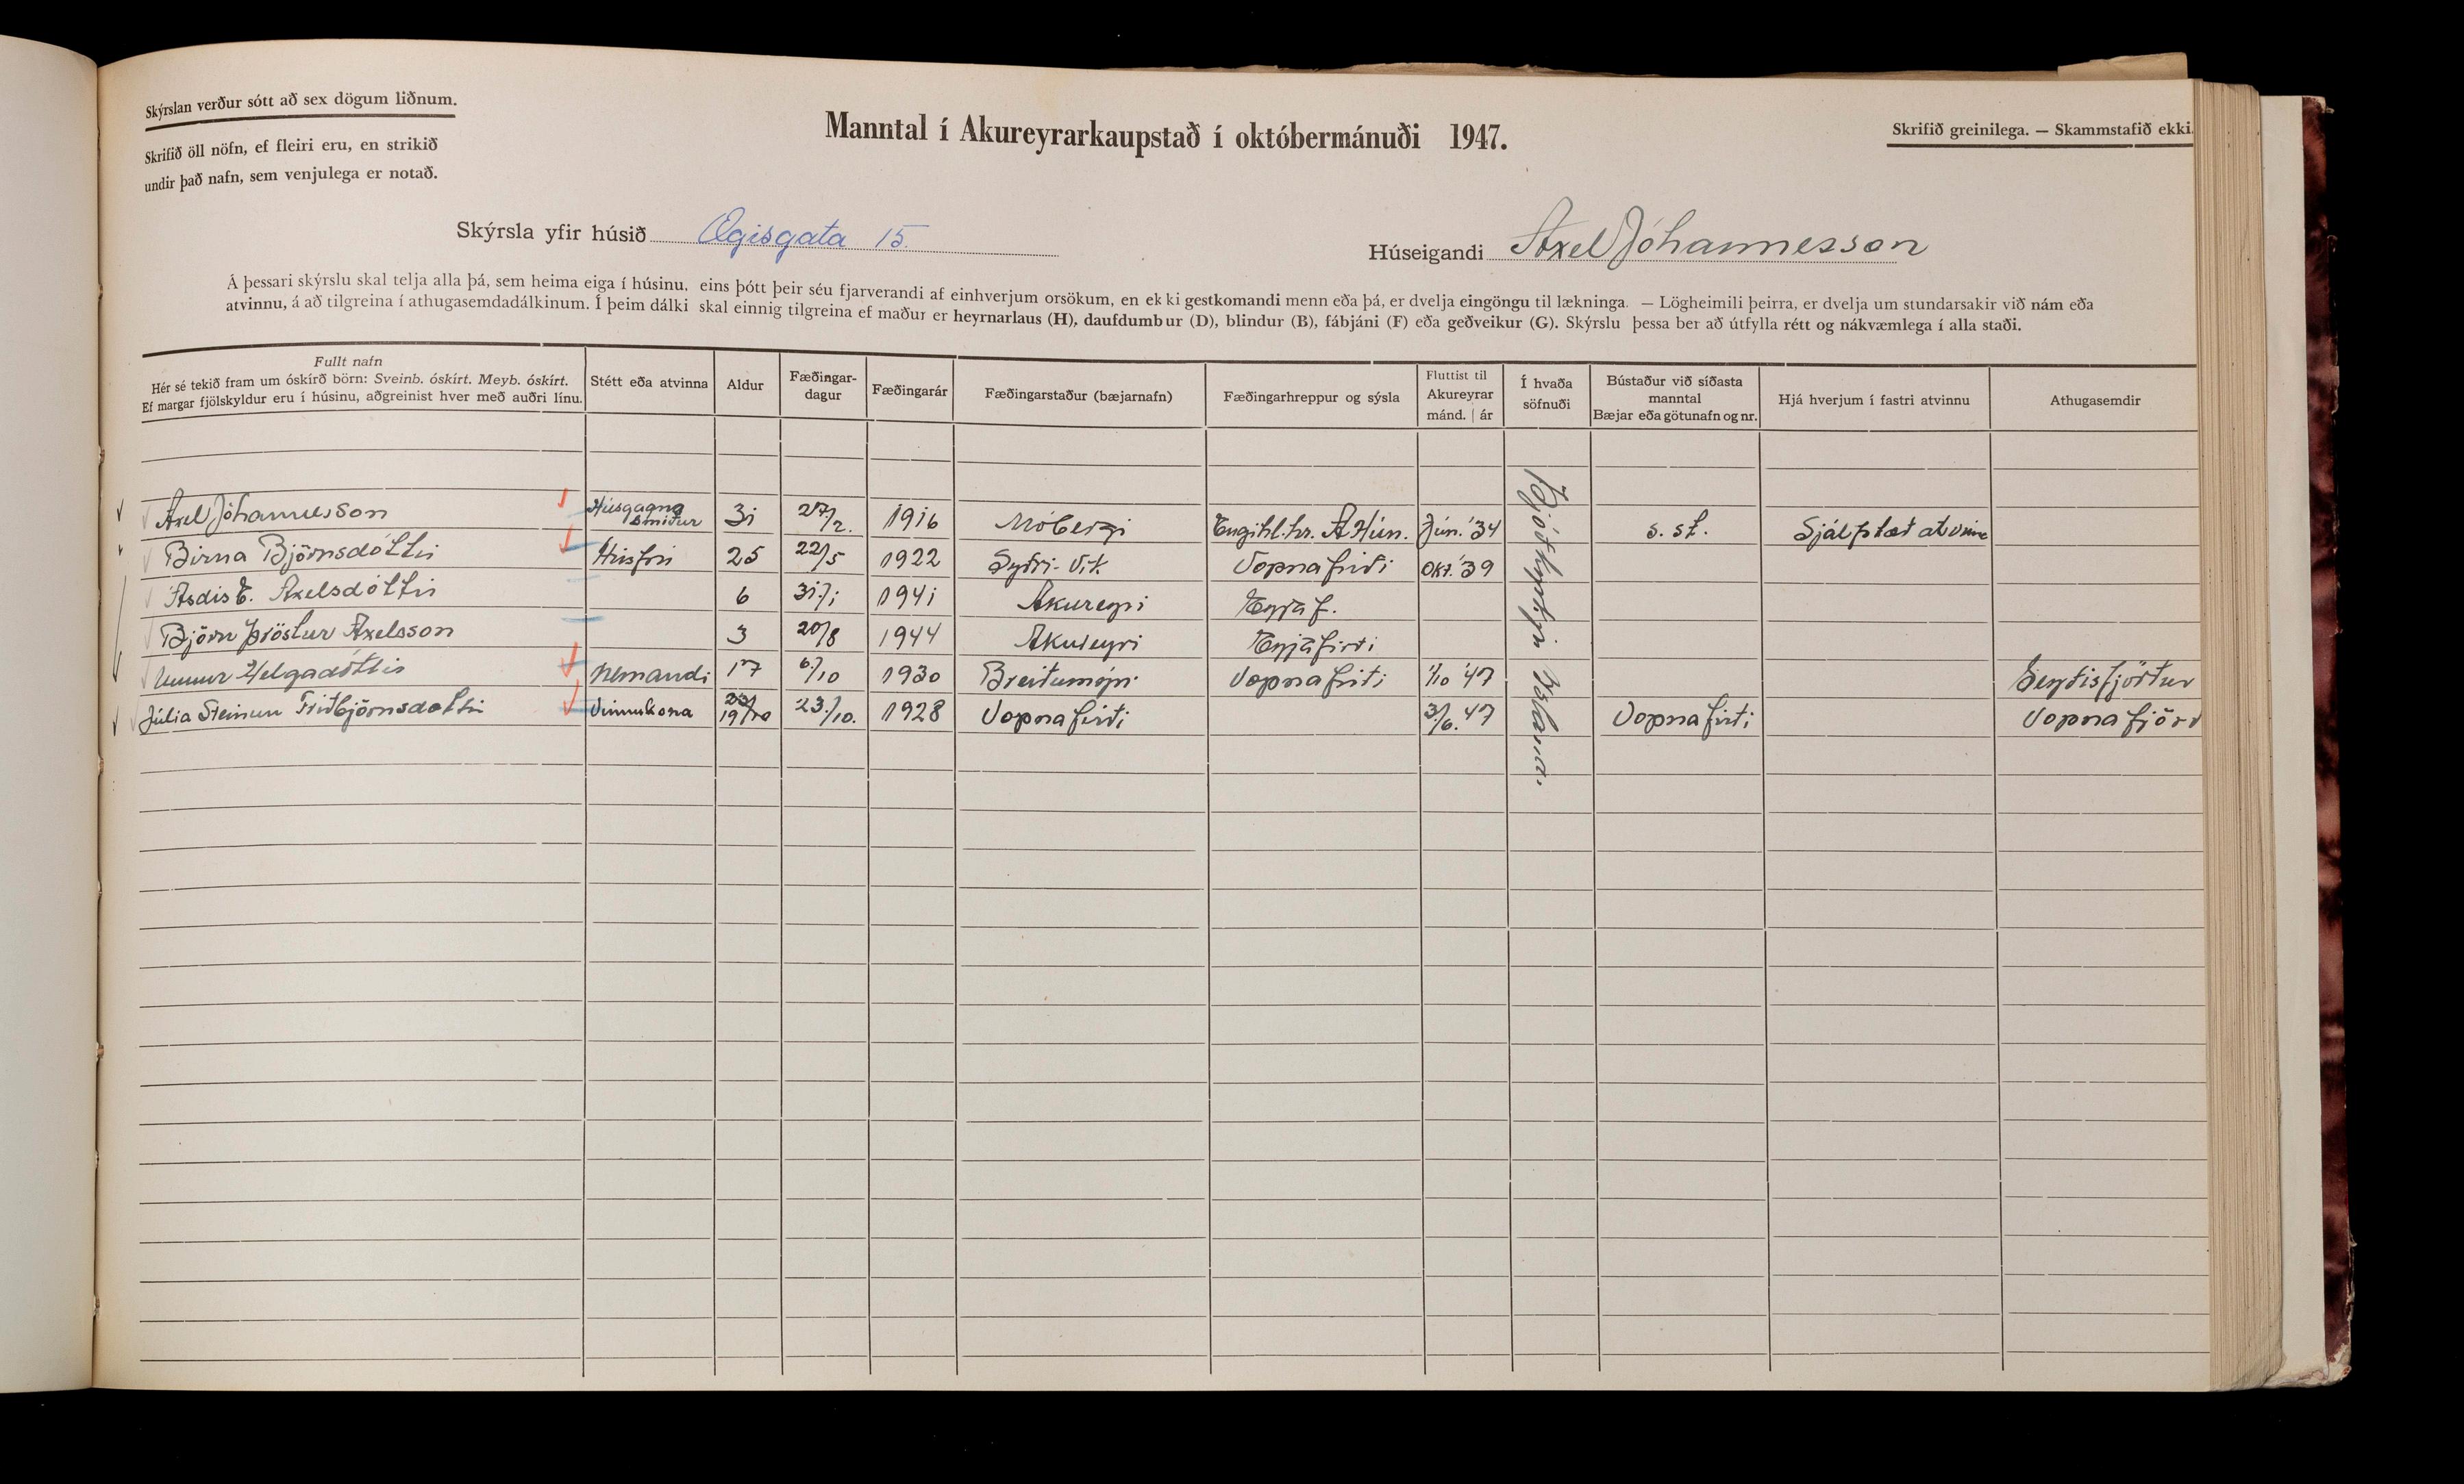 Skýrslan verður sótt að sex dögum liðnum.
Skrifið öll nöfn, ef fleiri eru, en strikið
undir það nafn, sem venjulega er notað.
Manntal í Akureyrarkaupstað í októbermánuði 1947.
Skrifið greinilega. — Skammstafið ekki.
Skýrsla yfir húsið Ægisgata 15.
Húseigandi Axel Jóhannesson
Á þessari skýrslu skal telja alla þá, sem heima eiga í húsinu, eins þótt þeir séu fjarverandi af einhverjum orsökum, en ekki gestkomandi menn eða þá, er dvelja eingöngu til lækninga. — Lögheimili þeirra, er dvelja um stundarsakir við nám eða
atvinnu, á að tilgreina í athugasemdadálkinum. Í þeim dálki skal einnig tilgreina ef maður er heyrnarlaus (H), daufdumbur (D), blindur (B), fábjáni (F) eða geðveikur (G). Skýrslu þessa ber að útfylla rétt og nákvæmlega í alla staði.
Fullt nafn
Hér sé tekið fram um óskírð börn: Sveinb. óskírt. Meyb. óskírt.
Ef margar fjölskyldur eru í húsinu, aðgreinist hver með auðri línu.
Stétt eða atvinna
Aldur
Fæðingar-
dagur
Fæðingarár
Fæðingarstaður (bæjarnafn)
Fæðingarhreppur og sýsla
Fluttist til
Akureyrar
mánd. | ár
Í hvaða
söfnuði
Bústaður við síðasta
manntal
Bæjar eða götunafn og nr.
Hjá hverjum í fastri atvinnu
Athugasemdir
Axel Jóhannesson Húsgagna smiður 31 27/2. 1916 Móbergi Engihl.hr. A Hún. Jún. '34 s. st. Sjálfstæð atvinna
Birna Björnsdóttir Húsfrú 25 22/5 1922 Syðri-Vík Vopnafirði Okt. '39
Ásdís E. Axelsdóttir 6 31/1 1941 Akureyri Eyjaf.
Björn Þröstur Axelsson 3 20/8 1944 Akureyri Eyjafirði
Unnur Helgadóttir Nemandi 17 6/10 1930 Breiðumýri Vopnafirði 1/10 '47 Seyðisfjörður
Júlía Steinunn Friðbjörnsdóttir Vinnukona 19 23/10. 1928 Vopnafirði 3/6. 47 Vopnafirði Vopnafjörð
Þjóðkirkju Íslands.